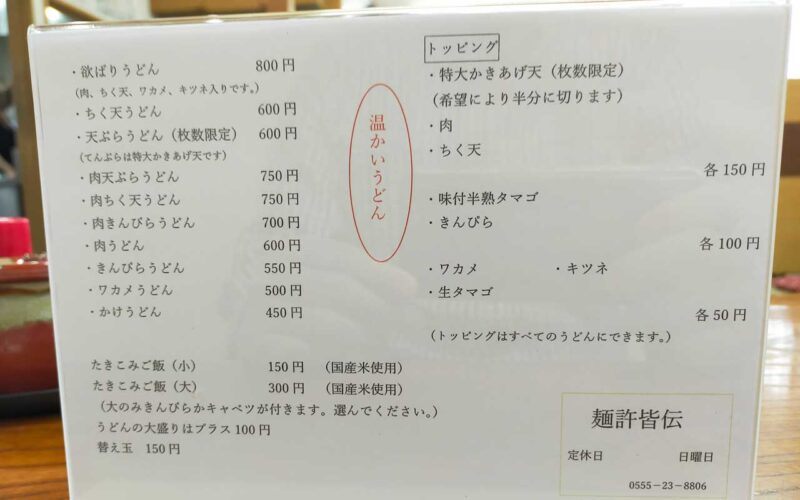 ・欲ばりうどん 800円
（肉、ちく天、ワカメ、キツネ入りです。）
・ちく天うどん 600円
・天ぷらうどん（枚数限定） 600円
（てんぷらは特大かきあげ天です）
・肉天ぷらうどん 750円
・肉ちく天うどん 750円
・肉きんぴらうどん 700円
・肉うどん 600円
・きんぴらうどん 550円
・ワカメうどん 500円
・かけうどん 450円
たきこみご飯（小） 150円 （国産米使用）
たきこみご飯（大） 300円 （国産米使用）
（大のみきんぴらかキャベツが付きます。選んでください。）
うどんの大盛りはプラス100円
替え玉 150円
温かいうどん
トッピング
・特大かきあげ天（枚数限定）
（希望により半分に切ります）
・肉
・ちく天
各150円
・味付半熟タマゴ
・きんぴら
各100円
・ワカメ ・キツネ
・生タマゴ
各50円
（トッピングはすべてのうどんにできます。）
麺許皆伝
定休日 日曜日
0555－23－8806